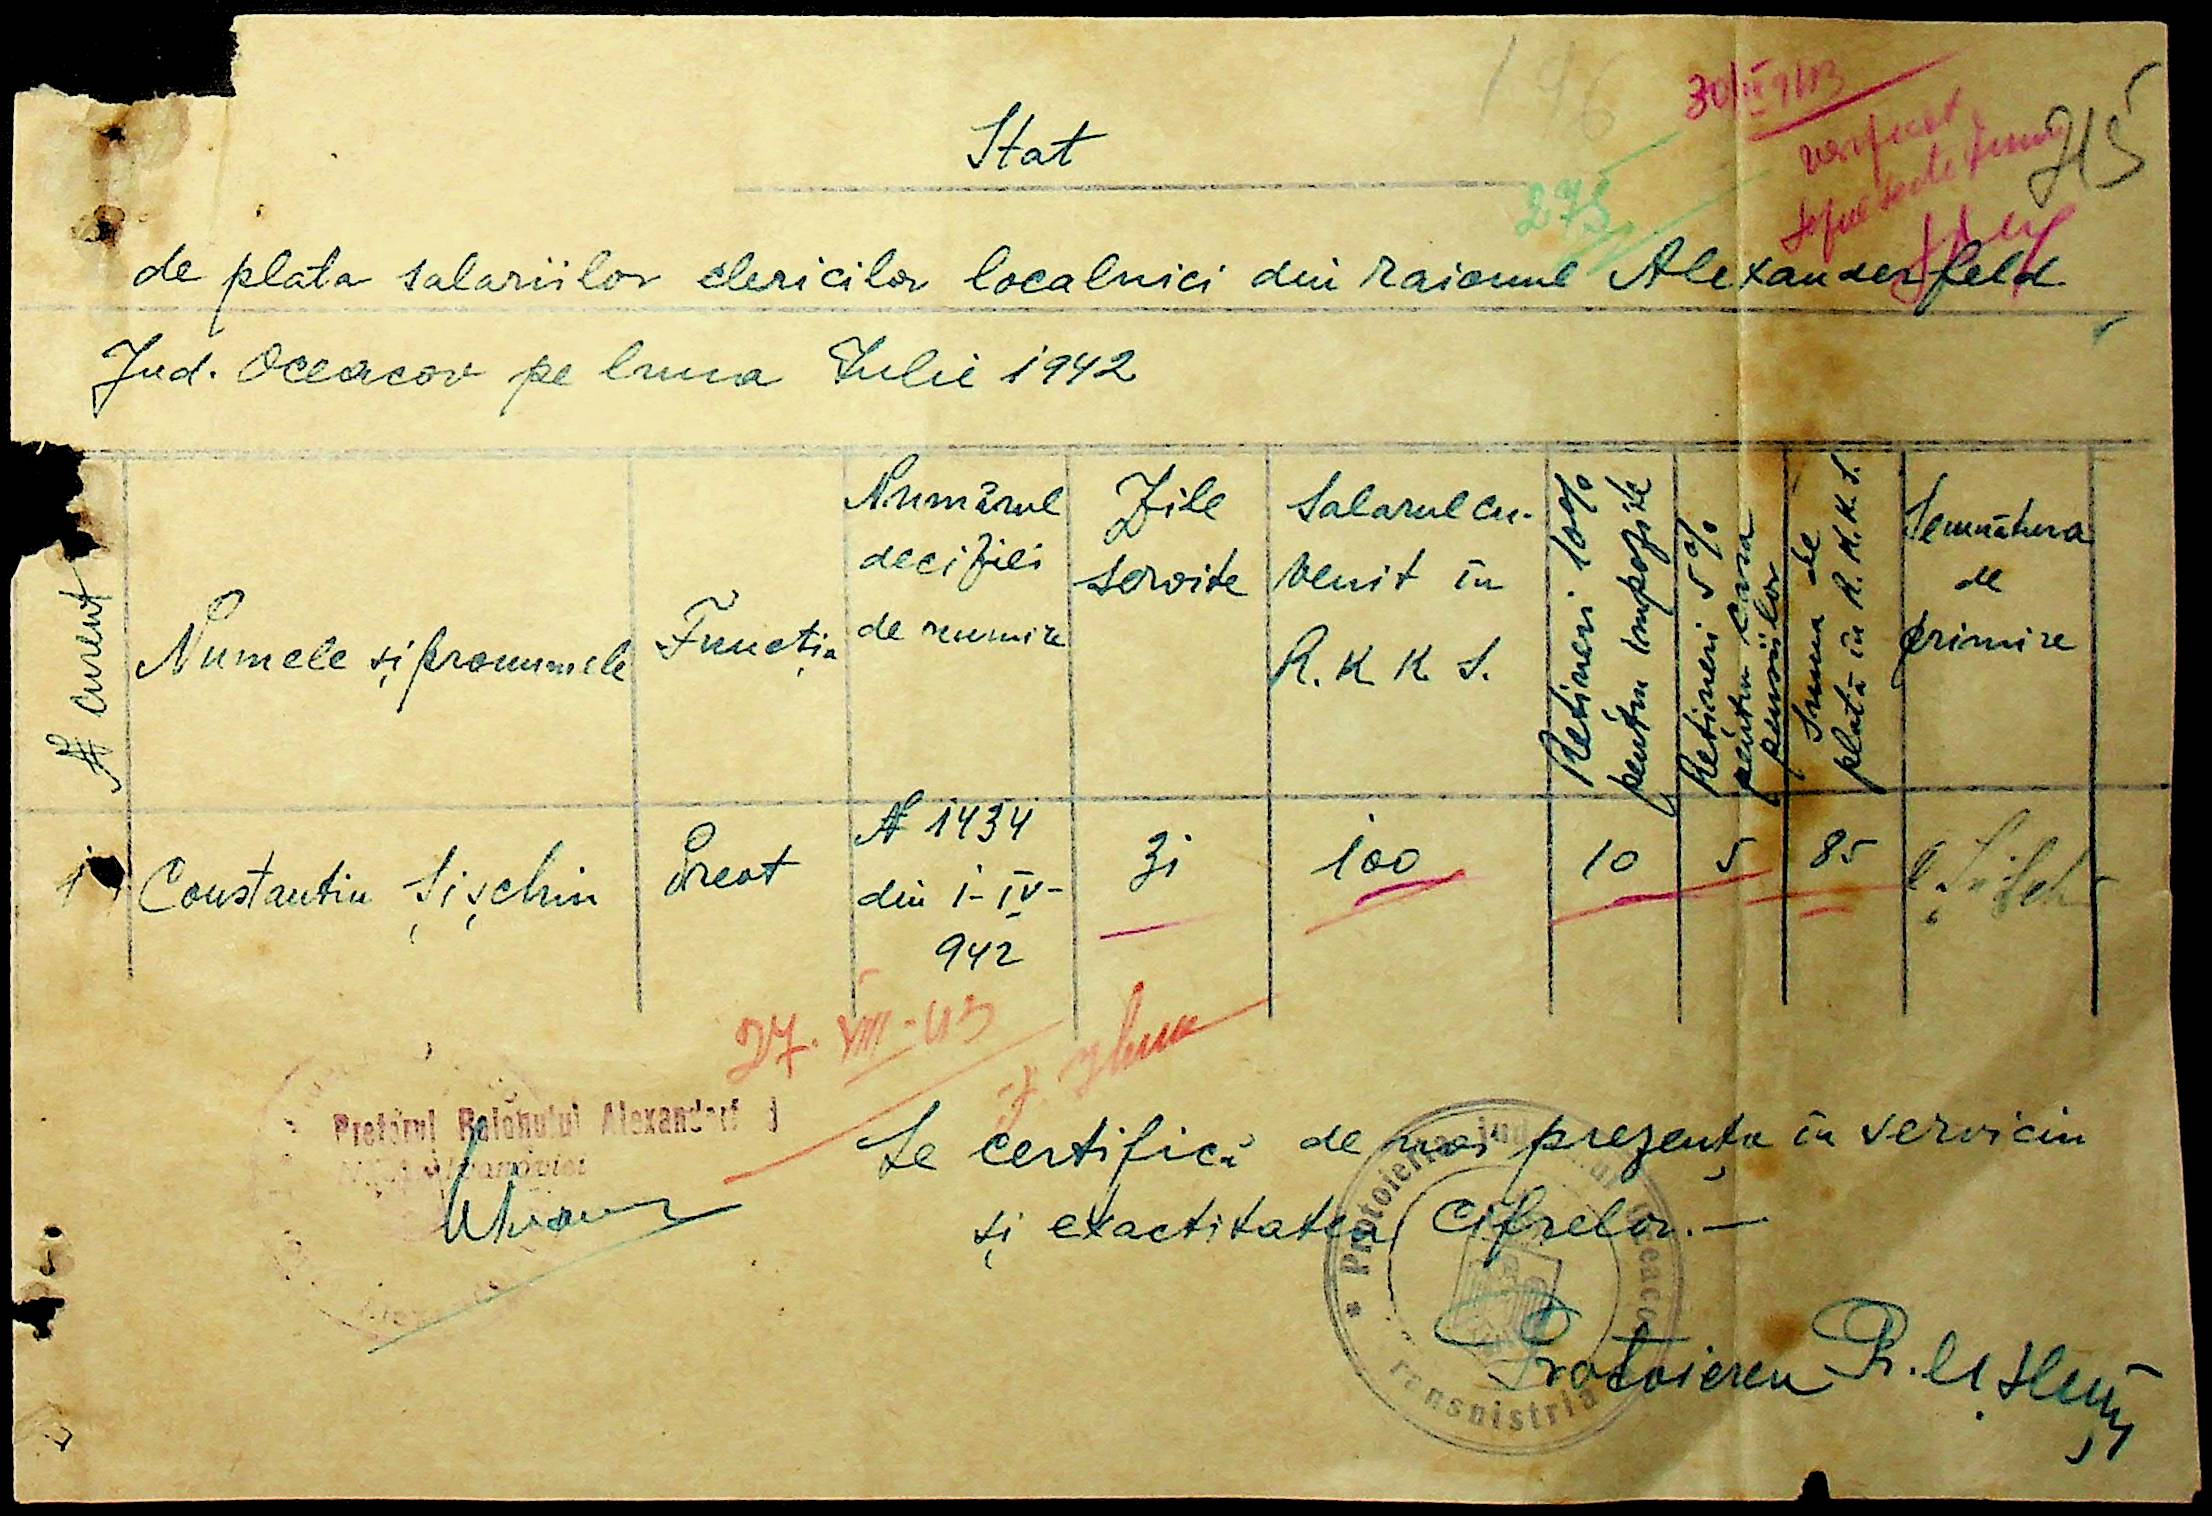 Stat
de plata salariilor clericilor localnici din raionul Alexanderfeld
Jud. Oceacov pe luna Iulie 1942
196
30/III 943
verificat
275
№ curent
Numele și pronumele
Funcția
Numărul
deciziei
de numire
Zile
servite
Salarul cu-
venit în
R. K. K. S.
Rețineri 10%
pentru impozite
Rețineri 5%
pentru casa
pensiilor
Suma de
plată în R. K. K. S.
Semnătura
de
primire
1
Constantin Șișchin
Preot
№ 1434
din 1-IV-
942
31
100
10
5
85
27. VIII-43
Pretorul Raionului
Se certifică de noi prezența în serviciu
și exactitatea cifrelor.—
Protoiereu
Protoieria jud
Transnistria